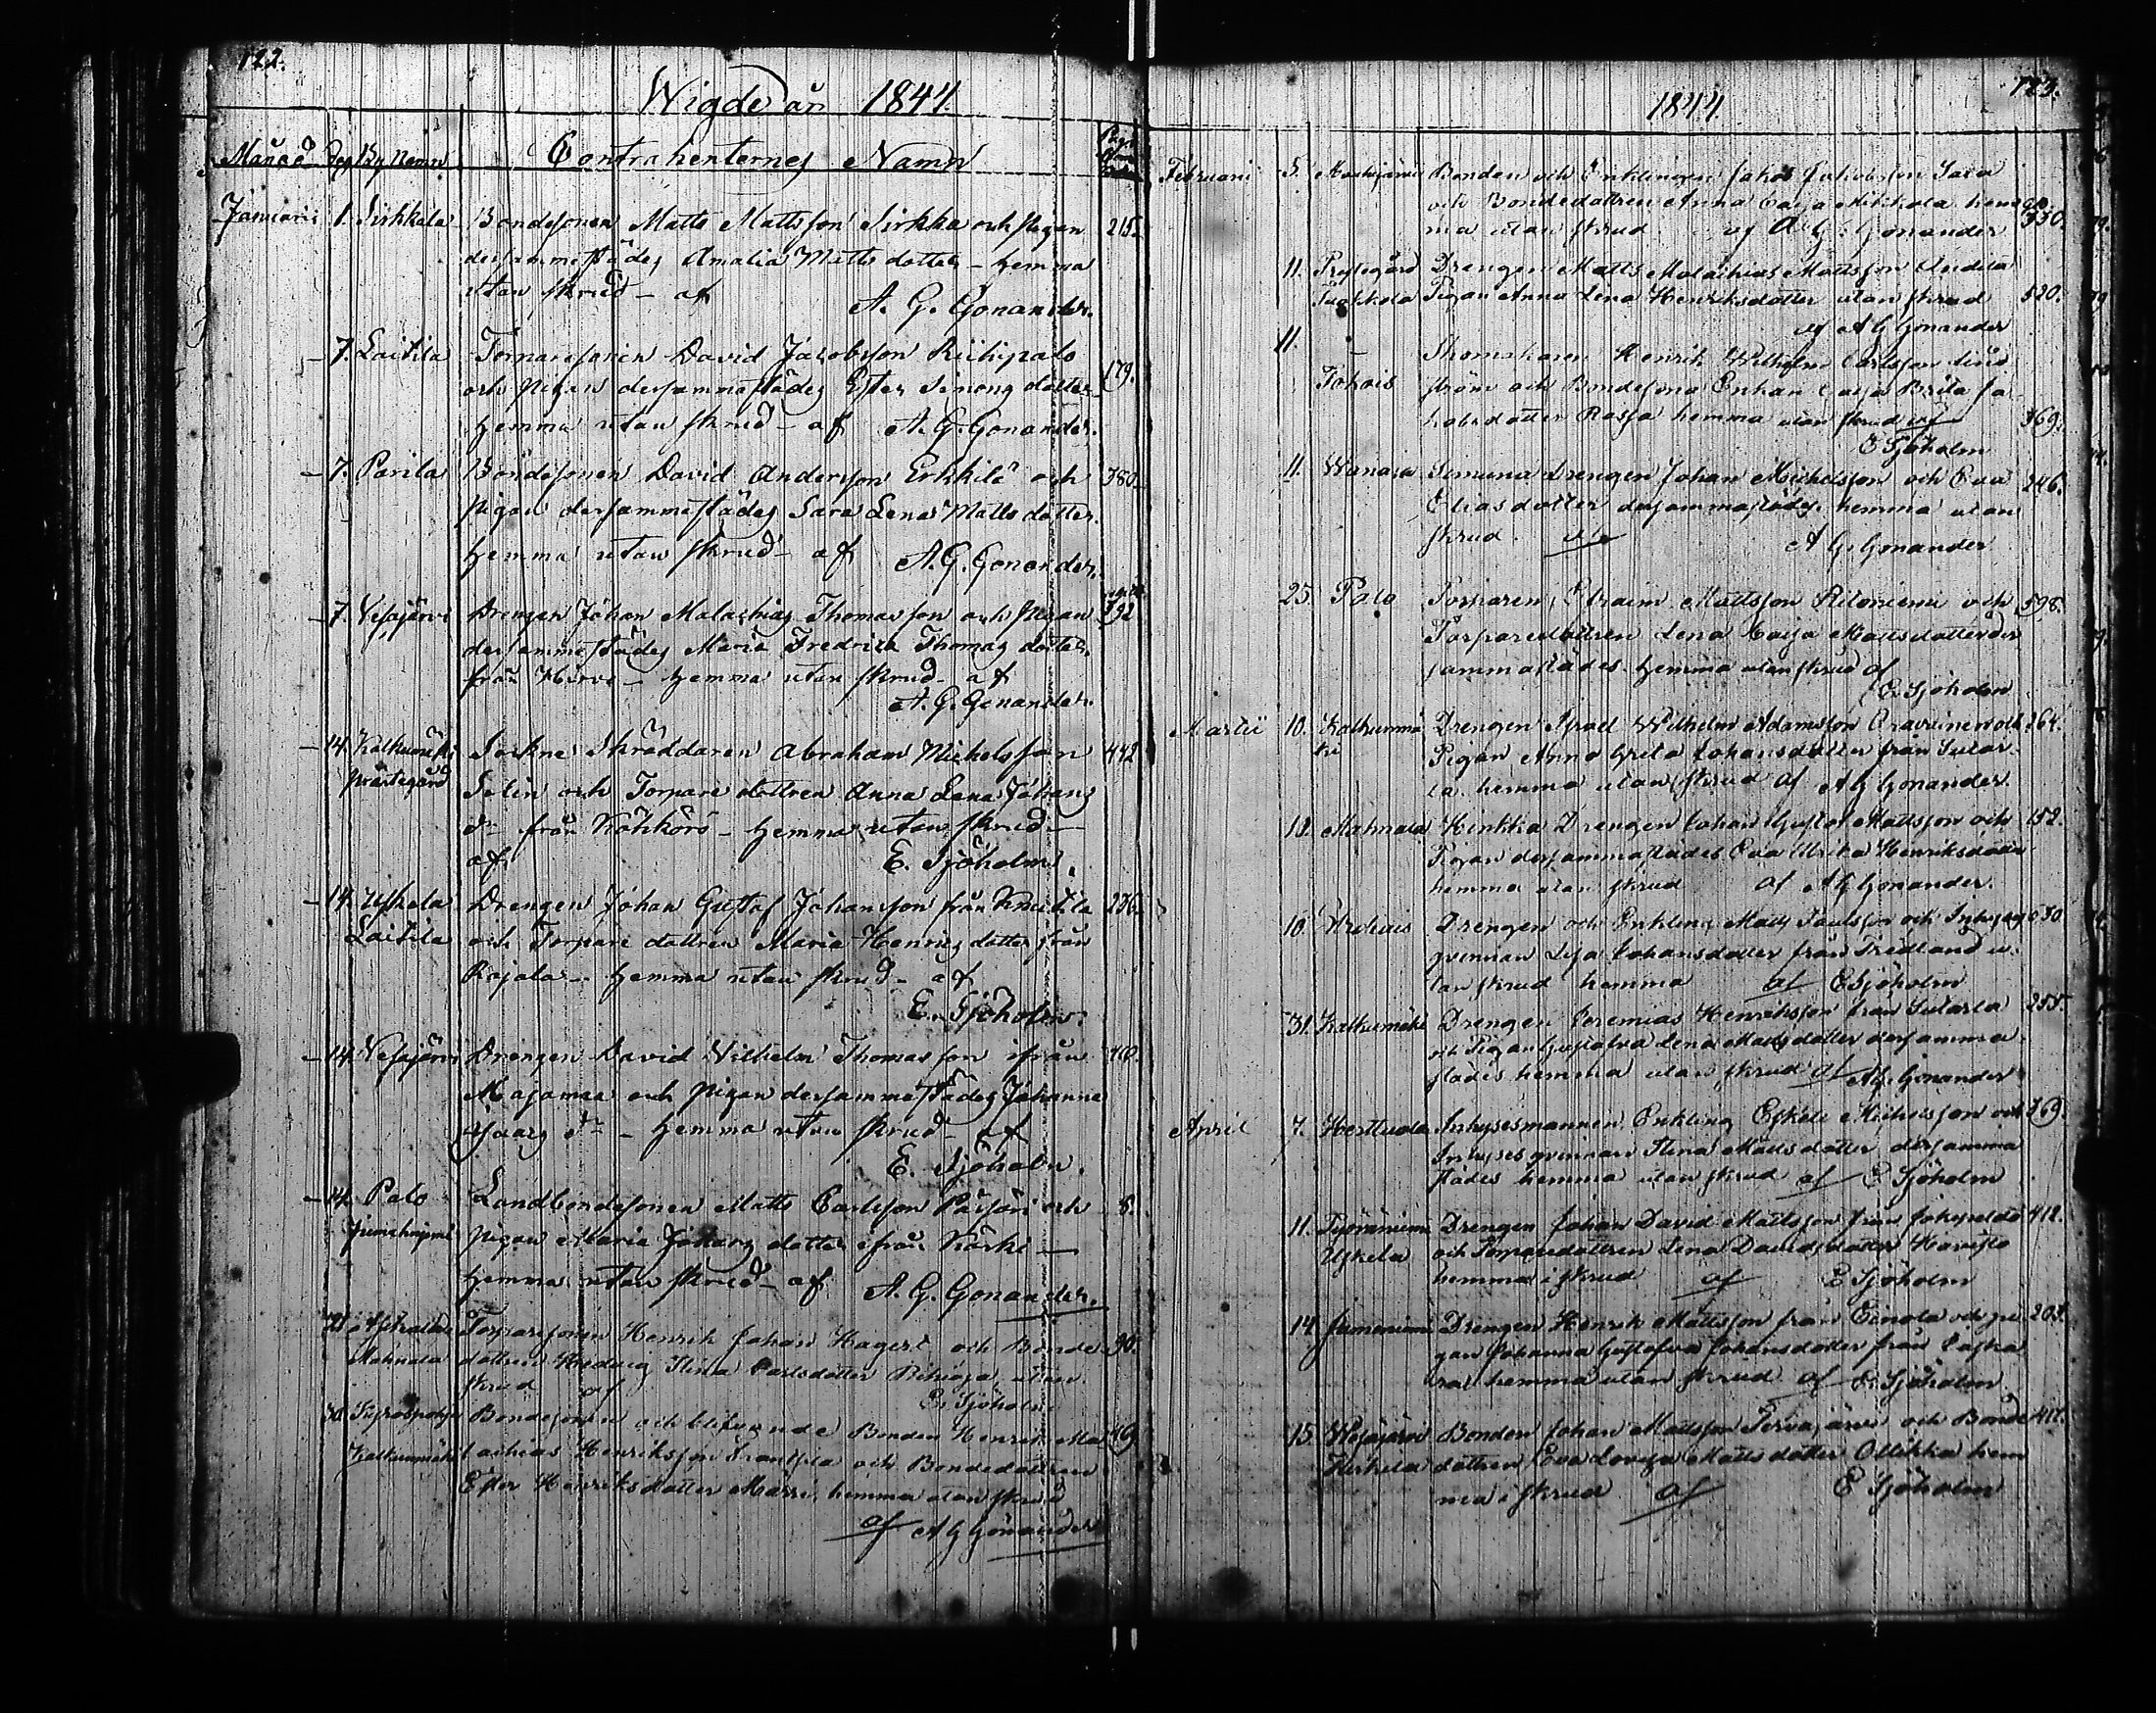 122.
Wigde år 1844.
Månad Dag By Namn Contrahenternes Namn
Januarii 1. Sirkkala Bondesonen Matts Mattsson Sirkka och Pigan 215.
dersammastädes Amalia Matts dotter - hemma
utan skrud - af A. G. Gonander.
- 7. Laitila Torparesonen David Jacobsson Riihipalo
och pigan dersammastädes Ester Simons dotter 179.
hemma utan skrud - af A. G. Gonander.
- 7. Parila Bondesonen David Andersson Erkkilä och 380.
pigan dersammastädes Sara Lena Matts dotter
hemma utan skrud - af A. G. Gonander.
- 7. Vesajärvi Drengen Johan Malachias Thomasson och Pigan 392
dersammastädes Maria Fredrica Thomas dotter
från Hirvi - hemma utan skrud - af
A. G. Gonander.
- 14. Kalkumäki Sockne Skräddaren Abraham Michelsson 442
prästegård Selin och Torpare dottren Anna Lena Johans
dr från Köhkörö - hemma utan skrud -
af E. Sjöholm.
- 14. Uskela Drengen Johan Gustaf Johansson från Knuutila 236.
Laitila och Torpare dottren Maria Henrics dotter från
Rajala - hemma utan skrud - af
E. Sjöholm.
- 14. Vesajärvi Drengen David Vilhelm Thomasson ifrån 410.
Majamaa och pigan dersammastädes Johanna
Isaacs dr - hemma utan skrud - af
E. Sjöholm.
- 14. Palo Landbondesonen Matts Carlsson och 8.
pigan Maria Johans dotter ifrån Kärki -
hemma utan skrud - af A. G. Gonander.
21 Torparesonen Henrik Johan Hagert och Bonde 90.
Mahnala dottren Hedvig Stina Carlsdotter utan
skrud af E. Sjöholm
30. Bondesonen och blifvande Bonden Henrik Ma 469
Kalkunmäki lachias Henriksson Frantsila och Bondedottren
Ester Henriksdotter Marri, hemma utan skrud
af A G Gonander
123.
1844
Februari 5. Bonden och Enklingen Jakob Jakobsson
och Bondedottren Anna Caisa Nikkola hem
ma utan skrud af A G. Gonander 350.
11. Prestegård Drengen Matts Malachias Mattsson
Pigan Anna Lena Henriksdotter utan skrud 520.
af A G Gonander
11. - Skomakaren Henrik Wilhelm Carlsson Lind
Tokois ström och Bondesons Enkan Caisa Brita Ja
kobsdotter Rasja hemma utan skrud af 369.
E Sjöholm
11. Wanaja Simuna Drengen Johan Michelsson och Eva 246.
Eliasdotter dersammastädes hemma utan
skrud af A G. Gonander
25. Palo Torparen Efraim Mattsson Ritoniemi och 598.
Torparedottren Lena Caisa Mattsdotter der
sammastädes hemma utan skrud af
E. Sjöholm
Martii 10. Kalkunmä Drengen Israel Wilhelm Adamsson och 264.
ki Pigan Anna Greta Johansdotter från Sutar
la hemma utan skrud af A G Gonander.
10. Mahnala Heikka Drengen Johan Gustaf Mattsson och 152.
Pigan dersammastädes Eva Ulrika Henriksdotter
hemma utan skrud af A G Gonander.
10. Drengen och Enkling Matts Paulsson och Inhyses 530
qvinnan Lisa Johansdotter från Fredland u
tan skrud hemma af E Sjöholm
31. Kalkumäki Drengen Jeremias Henriksson från Sutarla 255.
och Pigan Gustafva Lena Mattsdotter dersamma
städes hemma utan skrud af A G. Gonander
April 7. Herttuala Inhysesmannen Enkling Eskil Michelsson och 269.
Inhysesqvinnan Stina Mattsdotter dersamma
städes hemma utan skrud af E Sjöholm
11. Työräniemi Drengen Johan David Mattsson från 412.
Uskela och Torparedottren Lena Davidsdotter Havisto
hemma i skrud af E Sjöholm
14 Jumeniemi Drengen Henrik Mattsson från Einola och pi 203.
gan Johanna Gustafva Johansdotter från
hemma utan skrud af E. Sjöholm
15. Wesajärvi Bonden Johan Mattsson Tervajärvi och Bonde 417.
dottren Eva Lovisa Mattsdotter Ollikka hem
ma i skrud af E Sjöholm